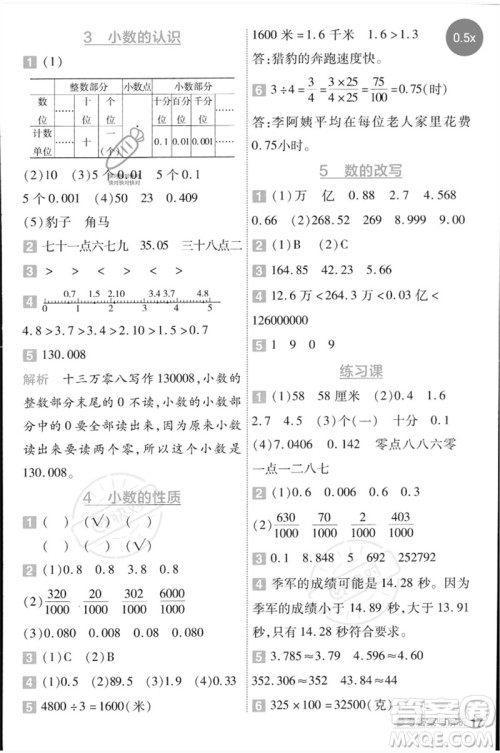 3 小数的认识
1 (1)
整数部分 小数点 小数部分
数位 …… 十位 个位 · 十分位 百分位 千分位 ……
计数单位 …… 十 一(个) 0.1 0.01 0.001 ……
(2)10 (3)5个0.01 5个0.1
5个0.001 (4)50 23
(5)豹子 角马
2 七十一点六七九 35.05 三十八点二
3 > > > < >
4 0.7 1.5 2.1 3.7 4.8
0 1.0 2.0 3.0 4.0 5.0
4.8>3.7>2.1>1.5>0.7
5 130.008
解析 十三万零八写作130008,小数的
整数部分末尾的0不读,小数的小数
部分中的0要全部读出来,因此小数
读出来要读两个零,这个小数是
130.008。
4 小数的性质
1 ( ) (√) ( )
( ) (√) (√)
2 (1)0.8 0.8 0.8
(2)320/1000 20/1000 302/1000 6000/1000
(3)0.080 0.008 0.080
3 (1)C (2)B
4 (1)0.5 (2)0.145 (3)2.9
5 4800÷3=1600(米)
1600米=1.6千米 1.6>1.3
答:猎豹的奔跑速度快。
6 3÷4=3/4=3×25/4×25=75/100=0.75(时)
答:李阿姨平均在每位老人家里花费
0.75小时。
5 数的改写
1 (1)万 亿 0.88 2.7 4.568
0.66 (2)0.9 0.87 0.872
2 (1)B (2)C
3 164.85 42.23 5.66
4 12.6万<264.3万<0.43亿<
126000000
5 1 9 0 9
练习课
1 (1)58 58厘米 (2)0.3 1.4
2.7 4.5 (3)个(一) 十分 0.1
(4)7.0406 0.142 零点八八六零
一点一二八七
2 (1)0.2 0.006 0.02
(2)630/1000 70/1000 2/1000 403/1000
3 0.1 8.848 5 692 252792
4 季军的成绩可能是14.28秒。因为
亚军的成绩小于14.89秒,大于13.91
秒,所以14.28秒符合要求。
5 3.785≈3.79 29.954≈30.0
3.445≈3 9.996≈10.00
6 325×100=32500(克)
17
0.5x